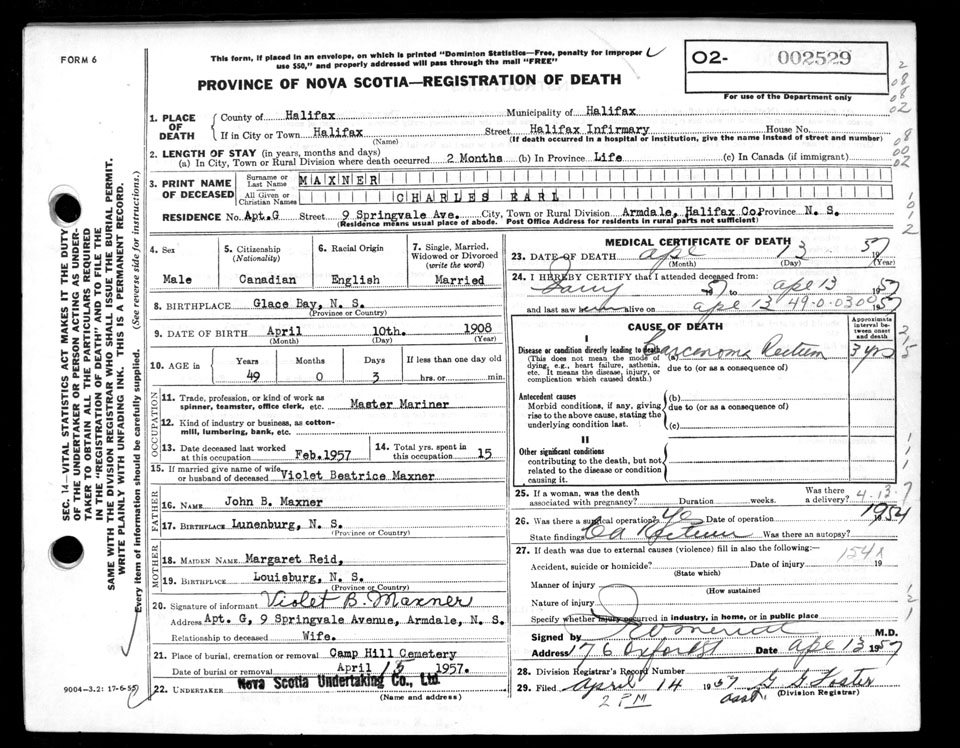 FORM 6
This form, if placed in an envelope, on which is printed "Dominion Statistics—Free, penalty for improper
use $50," and properly addressed will pass through the mail "FREE"
O2- 002529
For use of the Department only
PROVINCE OF NOVA SCOTIA—REGISTRATION OF DEATH
1. PLACE OF DEATH
County of Halifax Municipality of Halifax
If in City or Town Halifax Street Halifax Infirmary House No.
(Name) (If death occurred in a hospital or institution, give the name instead of street and number)
2. LENGTH OF STAY (in years, months and days)
(a) In City, Town or Rural Division where death occurred 2 Months (b) In Province Life (c) In Canada (if immigrant)
3. PRINT NAME OF DECEASED
Surname or Last Name MAXNER
All Given or Christian Names CHARLES EARL
RESIDENCE No. Apt.G Street 9 Springvale Ave. City, Town or Rural Division Armdale, Halifax Co. Province N. S.
(Residence means usual place of abode. Post Office Address for residents in rural parts not sufficient)
4. Sex
Male
5. Citizenship (Nationality)
Canadian
6. Racial Origin
English
7. Single, Married, Widowed or Divorced (write the word)
Married
8. BIRTHPLACE Glace Bay, N. S.
(Province or Country)
9. DATE OF BIRTH April 10th. 1908
(Month) (Day) (Year)
10. AGE in Years Months Days If less than one day old
49 0 3 hrs. or min.
OCCUPATION
11. Trade, profession, or kind of work as
spinner, teamster, office clerk, etc. Master Mariner
12. Kind of industry or business, as cotton-
mill, lumbering, bank, etc.
13. Date deceased last worked at this occupation Feb.1957
14. Total yrs. spent in this occupation 15
15. If married give name of wife
or husband of deceased Violet Beatrice Maxner
FATHER
16. NAME John B. Maxner
17. BIRTHPLACE Lunenburg, N. S.
(Province or Country)
MOTHER
18. MAIDEN NAME Margaret Reid,
19. BIRTHPLACE Louisburg, N. S.
(Province or Country)
20. Signature of informant Violet B. Maxner
Address Apt. G, 9 Springvale Avenue, Armdale, N. S.
Relationship to deceased Wife.
21. Place of burial, cremation or removal Camp Hill Cemetery
Date of burial or removal April 15 1957.
22. UNDERTAKER Nova Scotia Undertaking Co., Ltd
(Name and address)
9004-3.2: 17-6-55
MEDICAL CERTIFICATE OF DEATH
23. DATE OF DEATH Apl 13 1957
(Month) (Day) (Year)
24. I HEREBY CERTIFY that I attended deceased from:
57 to Apl 13 1957
and last saw alive on Apl 13 49-0-0300 1957
CAUSE OF DEATH
Approximate interval between onset and death
I
Disease or condition directly leading to death (a) Carcenoma Rectum 3 yrs
(This does not mean the mode of dying, e.g., heart failure, asthenia, etc. It means the disease, injury, or complication which caused death.)
due to (or as a consequence of)
Antecedent causes
Morbid conditions, if any, giving rise to the above cause, stating the underlying condition last.
(b)
due to (or as a consequence of)
(c)
II
Other significant conditions
contributing to the death, but not related to the disease or condition causing it.
25. If a woman, was the death associated with pregnancy? Duration weeks. Was there a delivery? 4-13-7
26. Was there a surgical operation? Date of operation 1954
State findings Ca Rectum Was there an autopsy?
27. If death was due to external causes (violence) fill in also the following:— 154X
Accident, suicide or homicide? Date of injury 19
(State which)
Manner of injury
(How sustained
Nature of injury
Specify whether injury occurred in industry, in home, or in public place
Signed by M.D.
Address 176 Oxford St Date Apl 13 1957
28. Division Registrar's Record Number
29. Filed April 14 1957 G G Foster
2 PM asst. (Division Registrar)
SEC. 14—VITAL STATISTICS ACT MAKES IT THE DUTY
OF THE UNDERTAKER OR PERSON ACTING AS UNDER-
TAKER TO OBTAIN ALL THE PARTICULARS REQUIRED
IN THE "REGISTRATION OF DEATH" AND TO FILE THE
SAME WITH THE DIVISION REGISTRAR WHO SHALL ISSUE THE BURIAL PERMIT.
WRITE PLAINLY WITH UNFADING INK. THIS IS A PERMANENT RECORD.
Every item of information should be carefully supplied. (See reverse side for instructions.)